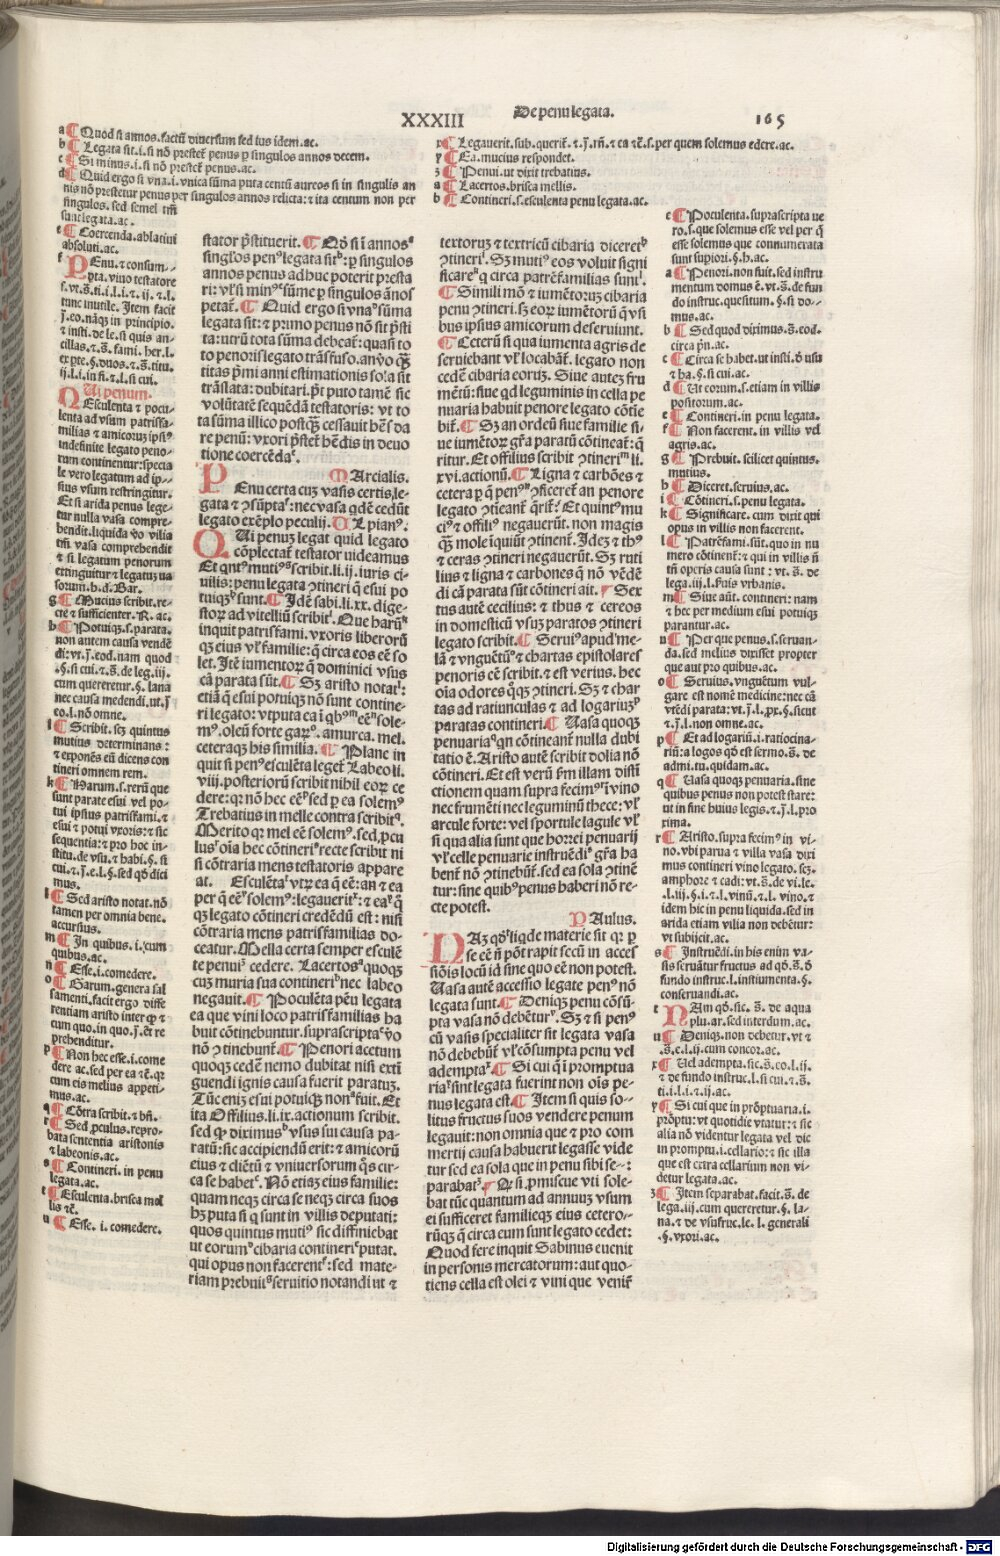 XXXIII
De penu legata.
165
a ¶ Quod si annos. factũ diuersum sed ius idem. ac.
b ¶ Legata sit. i. si nõ prestet penus ꝑ singulos annos decem.
c ¶ Si minus. i. si nõ prestet penus. ac.
d ¶ Quid ergo si vna. i. vnica sũma puta centũ aureos si in singulis an
nis nõ prestetur penus per singulos annos relicta: ⁊ ita centum non per
singulos. sed semel tm̃
sunt legata. ac.
e ¶ Coercenda. ablatiui
absoluti. ac.
f PEnu. ⁊ consum-
pta. vino testatore
s. vt. s̃. ti. i. l. i. ⁊. ij. ⁊. l.
tunc inutile. Item facit
j̃. eo. nãqꝫ in principio.
⁊ insti. de le. si quis an-
cillas. ⁊. s̃. fami. her. l.
ex pte. §. duos. ⁊. s̃. titu.
ij. l. i. in fi. ⁊. l. si cui.
QUi penum.
Esculenta ⁊ pocu-
lenta ad vsam patrisfa-
milias ⁊ amicoruꝫ ipsiꝰ
indefinite legato peno-
rum continentur: specia
le vero legatum ad ip-
sius vsum restringitur.
Et si arida penus lege-
tur nulla vasa compre-
hendit. liquida ꝟo vilia
tm̃ vasa comprehendit
⁊ si legatum penorum
extinguitur ⁊ legatuꝫ va
sorum. h. d. Bar.
g ¶ Mucius scribit. re-
cte ⁊ sufficienter. R. ac.
h ¶ Potuiqꝫ. s. parata.
non autem causa vendẽ
di: vt. j̃. eod. nam quod
.§. si cui. ⁊. s̃. de leg. iij.
cum quereretur. §. lana
nec causa medendi. vt. j̃
eo. l. nõ omne.
i ¶ Scribit. seꝫ quintus
mutius determinans:
⁊ exponẽs eũ dicens con
tineri omnem rem.
k ¶ Harum. s. rerũ que
sunt parate esui vel po-
tui ipsius patrisfami. ⁊
esui ⁊ potui vxoris: ⁊ sic
sequentia: ⁊ pro hoc in-
stitu. de vsu. ⁊ habi. §. si
cui. ⁊. j̃. e. l. §. sed qđ dici
mus.
l ¶ Sed aristo notat. nõ
tamen per omnia bene.
accursius.
m ¶ In quibus. i. cum
quibus. ac.
n ¶ Esse. i. comedere.
o ¶ Garum. genera sal
samenti. facit ergo diffe
rentiam aristo inter qđ ⁊
cum quo. in quo. j̃. ẽt re
prehenditur.
p ¶ Non hec esse. i. come
dere ac. sed per ea ⁊c̃. qꝛ
cum eis melius appeti-
mus. ac.
q ¶ Cõtra scribit. ⁊ bñ.
r ¶ Sed ꝓculus. repro-
bata sententia aristonis
⁊ labeonis. ac.
s ¶ Contineri. in penu
legata. ac.
t ¶ Esculenta. brisca mel
lis ⁊c̃.
u ¶ Esse. i. comedere.
stator p̃stituerit. ¶ Qđ si i annosᵃ
singl̃os penꝰ legata sitᵇ: ꝑ singulos
annos penus adhuc poterit presta
ri: vl̃ si minꝰᶜ sũme ꝑ singulos ãnos
petat̃. ¶ Quid ergo si vnaᵈ sũma
legata sit: ⁊ primo penus nõ sit p̃sti
ta: utrũ tota sũma debeat̃: quasi to
to penoris legato trãsfuso. an ꝟo qꝫ̃
titas p̃mi anni estimationis sola sit
trãslata: dubitari. p̃t puto tamẽ sic
volũtatẽ sequẽdã testatoris: vt to
ta sũma illico postqꝫ̃ cessauit hẽs da
re penũ: vxori p̃stet̃ hẽdis in deuo
tione coercẽdaᵉ.
Marcialis.
PEnu certa cuꝫ vasis certis, le-
gata ⁊ ꝯsũptaᶠ: nec vasa qdẽ cedũt
legato exẽplo peculij. Ulpianꝰ.
QUi penuꝫ legat quid legato
cõplectat̃ testator uideamus
Et qntꝰ mutiꝰᵍ scribit. li. ij. iuris ci-
uilis: penu legata ꝯtineri q̃ esui po
tuiqꝫʰ sunt. ¶ Idẽ sabi. li. xx. dige-
stoꝝ ad vitelliũ scribitⁱ. Que harũᵏ
inquit patrisfami. vxoris liberorũ
qꝫ eius vl̃ familie: q̃ circa eos eẽ so
let. Itẽ iumentoꝝ q̃ dominici vsus
cã parata sũt. ¶ Sꝫ aristo notatˡ:
etiã q̃ esui potuiqꝫ nõ sunt contine-
ri legato: vtputa ea i qbꝰᵐ eẽⁿ sole-
mꝰ. oleũ forte garꝝᵒ. amurca. mel.
ceteraqꝫ his similia. ¶ Plane in
quit si penꝰ esculẽta leget̃ Labeo li.
viii. posteriorũ scribit nihil eoꝝ ce
dere: qꝛ nõ hec eẽᵖ sed ꝑ ea solemꝰ
Trebatius in melle contra scribitq.
Merito qꝛ mel eẽ solemꝰ. sed. ꝓcu
lusʳ oĩa hec cõtineriˢ recte scribit ni
si cõtraria mens testatoris appare
at. Esculẽtaᵗ vtꝛ ea q̃ eẽ: an ⁊ ea
per q̃ eẽᵘ solemꝰ: legauerit˟: ⁊ eaʸ q̃
qꝫ legato cõtineri credẽdũ est: nisi
cõtraria mens patrisfamilias do-
ceatur. Mella certa semper esculẽ
te penuiᶻ cedere. Lacertosᵃ quoqꝫ
cuꝫ muria sua contineriᵇ nec labeo
negauit. ¶ Poculẽtaᶜ pẽu legata
ea que vini loco patrisfamilias ha
buit cõtinebuntur. suprascriptaᶜ ꝟo
nõ ꝯtinebunt̃. ¶ Penori acetum
quoqꝫ cedẽ nemo dubitat nisi exti
guendi ignis causa fuerit paratuꝫ.
Tũc eniꝫ esui potuiqꝫ nonᵃ fuit. Et
ita Offilius. li. ix. actionum scribit.
sed qđ diximusᵇ vsus sui causa pa-
ratũ: sic accipiendũ erit: ⁊ amicorũ
eius ⁊ cliẽtũ ⁊ vniuersorum q̃s cir-
ca se habetᶜ. Nõ etiaꝫ eius familie:
quam neqꝫ circa se neqꝫ circa suos
hꝫ puta si q̃ sunt in villis deputati:
quos quintus mutiꝰ sic diffiniebat
ut eorumᵈ cibaria contineriᵉ putat.
qui opus non facerentᶠ: sed mate-
riam prebuitᵍ seruitio notandi ut ⁊
x ¶ Legauerit. sub. querit̃. ⁊. j̃. im̃. ⁊ ea ⁊c̃. s. per quem solemus edere. ac.
y ¶ Ea. mucius respondet.
z ¶ Penui. ut dixit trebatius.
a ¶ Lacertos. brisca mellis.
b ¶ Contineri. s. esculenta penu legata. ac.
textoruꝫ ⁊ textricũ cibaria diceretʰ
ꝯtineriⁱ. Sꝫ mutiꝰ eos voluit signi
ficareᵏ q̃ circa patrẽfamilias suntˡ.
¶ Simili mõ ⁊ iumẽtoruꝫ cibaria
penu ꝯtineri. sꝫ eoꝝ iumẽtorũ q̃ vsi
bus ipsius amicorum deseruiunt.
¶ Ceterũ si qua iumenta agris de
seruiebant vl̃ locabãt̃. legato non
cedẽ cibaria eoruꝫ. Siue auteꝫ fru
mẽtũ: siue qd leguminis in cella pe
nuaria habuit penore legato cõtie
bit̃. ¶ Sꝫ an ordeũ siue familie si-
ue iumẽtoꝝ gr̃a paratũ cõtineat̃: q̃
ritur. Et offilius scribit ꝯtineriᵐ li.
xvi. actionũ. ¶ Ligna ⁊ carbões ⁊
cetera ꝑ q̃ penꝰⁿ ꝯficeret̃ an penore
legato ꝯtieant̃ q̃rit̃? Et quintꝰ mu
ciꝰ ⁊ offiliꝰ negauerũt. non magis
qꝫ̃ mole iquiũt ꝯtinent̃. Ideꝫ ⁊ thꝰ
⁊ ceras ꝯtineri negauerũt. Sꝫ ruti
lius ⁊ ligna ⁊ carbones q̃ nõ vẽdẽ
di cã parata sũt cõtineri ait. ¶ Sex
tus autẽ cecilius: ⁊ thus ⁊ cereos
in domesticũ vsuꝫ paratos ꝯtineri
legato scribit. ¶ Seruiꝰ apud me-
lã ⁊ vnguẽtũᵒ ⁊ chartas epistolares
penoris eẽ scribit. ⁊ est verius. hec
oĩa odores q̃qꝫ ꝯtineri. Sꝫ ⁊ char
tas ad ratiunculas ⁊ ad logariuꝫᵖ
paratas contineri. ¶ Uasa quoqꝫ
penuariaq qn cõtineant̃ nulla dubi
tatio ẽ. Aristo autẽ scribit dolia nõ
cõtineri. Et est verũ ẜm illam disti
ctionem quam supra fecimꝰʳ i vino
nec frumẽti nec leguminũ thece: vl̃
arcule forte: vel sportule lagule vl̃
si qua alia sunt que horrei penuarij
vl̃ celle penuarie instruẽdiˢ gr̃a ha
bent̃ nõ ꝯtinebũt̃. sed ea sola ꝯtinẽ
tur: sine quibꝰ penus haberi nõ re-
cte potest.
Paulus.
NAꝫ qđᵗ liqde materie sit qꝛ ꝑ
se eẽ ñ põt rapit secũ in acces
siõis locũ id sine quo eẽ non potest.
Uasa autẽ accessio legate penꝰ nõ
legata sunt. ¶ Deniqꝫ penu cõsũ-
pta vasa nõ debẽturᵘ. Sꝫ ⁊ si penꝰ
cũ vasis specialiter sit legata vasa
nõ debebũt̃ vl̃ cõsumpta penu vel
adempta˟. ¶ Si cui q̃ i promptua
riaʸ sint legata fuerint non oĩs pe-
nus legata est. ¶ Item si quis so-
litus fructus suos vendere penum
legauit: non omnia que ⁊ pro com
mertij causa habuerit legasse vide
tur sed ea sola que in penu sibi se-:
parabatᶻ. ¶ Qđ si. ꝓmiscue vti sole-
bat tũc quantum ad annuuꝫ vsum
ei sufficeret familieqꝫ eius cetero-
rũqꝫ q̃ circa eum sunt legato cedet:
Quod fere inquit Sabinus euenit
in personis mercatorum: aut quo-
tiens cella est olei ⁊ vini que venir̃
c ¶ Poculenta. suprascripta ve
ro. s. que solemus esse vel per q̃
esse solemus que connumerata
sunt supiori. §. h. ac.
a ¶ Penori. non fuit. sed instru
mentum domus ẽ. vt. s̃. de fun
do instruc. quesitum. §. si do-
mus. ac.
b ¶ Sed quod diximus. s̃. eod.
circa pñ. ac.
c ¶ Circa se habet. ut insti. ð usu
⁊ ha. §. si cui. ac.
d ¶ Ut eorum. s. etiam in villis
positorum. ac.
e ¶ Contineri. in penu legata.
f ¶ Non facerent. in villis vel
agris. ac.
g ¶ Prebuit. scilicet quintus.
mutius.
h ¶ Diceret. seruius. ac.
i ¶ Cõtineri. s. penu legata.
k ¶ Significare. cum dixit qui
opus in villis non facerent.
l ¶ Patrẽfami. sũt. quo in nu
mero cõtinent̃: ⁊ qui in villis ñ
tñ operis causa sunt: vt. s̃. de
lega. iii. l. seruis vrbanis.
m ¶ Siue aũt. contineri: nam
⁊ hec per medium esui potuiqꝫ
parantur. ac.
n ¶ Per que penus. s. seruan-
da. sed melius dixisset propter
que aut pro quibus. ac.
o ¶ Seruius. vnguẽtum vul-
gare est nomẽ medicine: nec cã
vẽdi parata: vt. j̃. l. pꝛ. §. sicut
⁊. j̃. l. non omne. ac.
p ¶ Et ad logariũ. i. ratiocina-
riũ: a logos qđ est sermo. s̃. de
admi. tu. quidam. ac.
q ¶ Uasa quoqꝫ penuaria. sine
quibus penus non potest stare:
ut in fine huius legis. ⁊. j̃. l. pro
xima.
r ¶ Aristo. supra fecimꝰ in vi-
no. vbi parua ⁊ villa vasa dixi
mus contineri vino legato. seꝫ.
amphore ⁊ cadi: vt. s̃. de vi. le.
.l. iii. §. i. ⁊. l. vinũ. ⁊. l. vino. ⁊
idem hic in penu liquida. sed in
arida etiam vilia non debẽtur:
vt subijcit. ac.
s ¶ Instruẽdi. in his enim va-
sis seruãtur fructus ad qđ. s̃. ð
fundo instruc. l. instrumenta. §.
conseruandi. ac.
t NAm qđ. sic. s̃. de aqua
plu. ar. sed interdum. ac.
u ¶ Deniqꝫ. non debetur. vt ⁊
.s̃. e. l. ij. cum concor. ac.
x ¶ Uel adempta. sic. s̃. eo. l. ij.
⁊ de fundo instruc. l. si cui. ⁊. s̃.
ti. i. l. i. ⁊. ij. ac.
y ¶ Si cui que in prõptuaria. i.
prõptu: vt quotidie vtatur: ⁊ sic
alia nõ videntur legata vel dic
in promptu. i. cellario: ⁊ sic illa
que est extra cellarium non vi-
detur legata. ac.
z ¶ Item separabat. facit. s̃. de
lega. iij. cum quereretur. §. la-
na. ⁊ de vsufruc. le. l. generali
.§. vxori. ac.
Digitalisierung gefördert durch die Deutsche Forschungsgemeinschaft - DFG